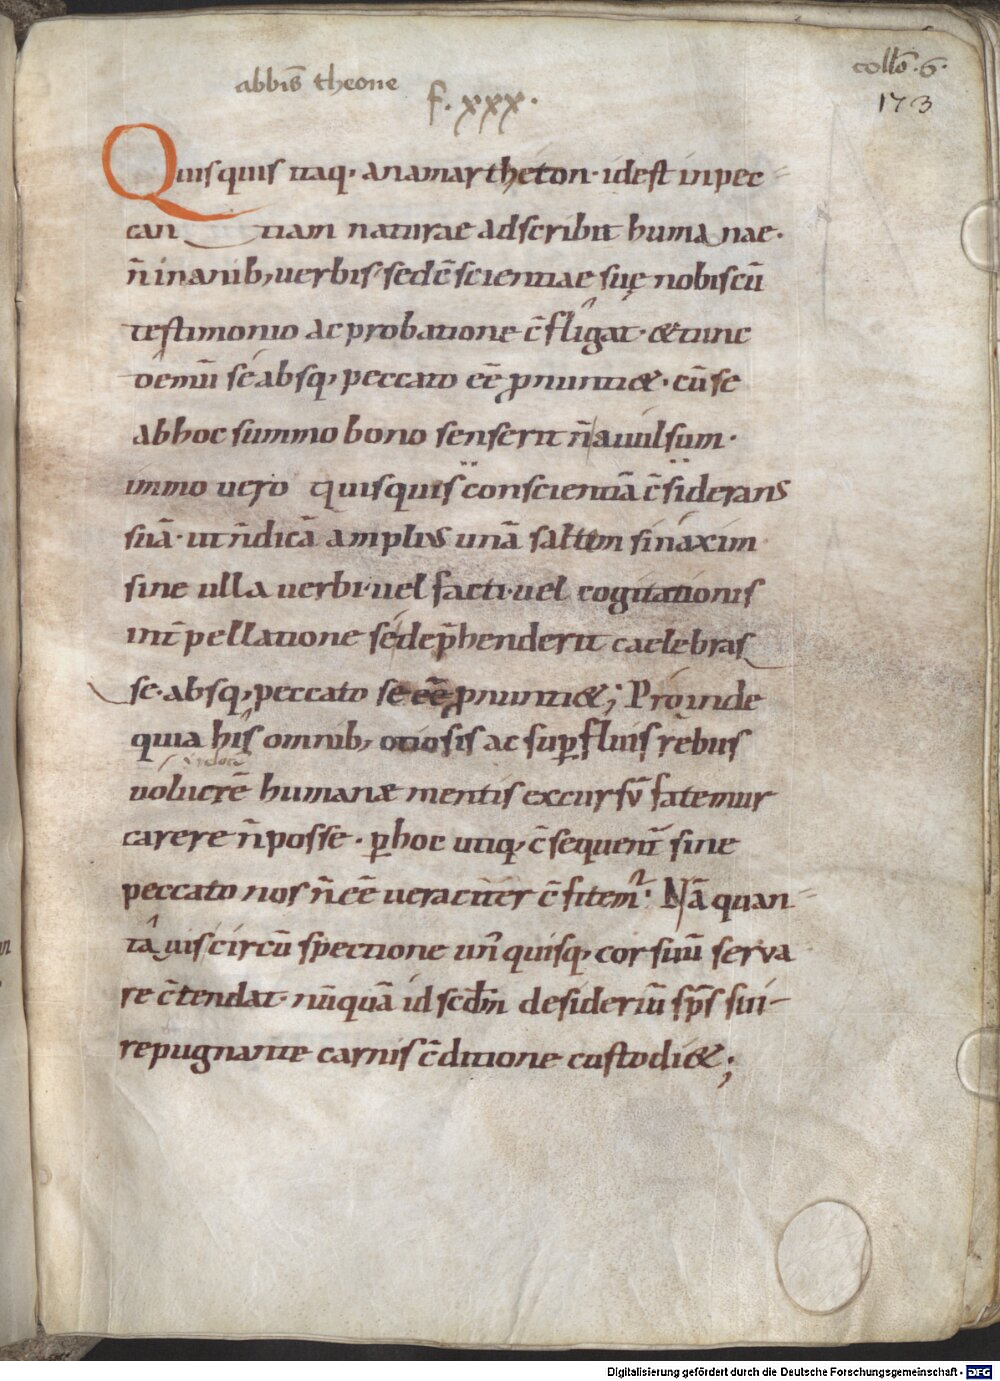 abbis̄ theone
f. xxx.
collō .6.
173
Quisquis itaq, anamartheton · id est inpec-
cantiam naturae adscribit humanae.
n̄ inanib, uerbis, sed c̄scientiae suę nobiscū
testimonio ac probatione c̄fligat · & tunc
demū se absq, peccato eē ꝓnunti&. cū se
ab hoc summo bono senserit n̄ auulsum.
immo uero quisquis conscientiā c̄siderans
suā · ut n̄ dicā amplius unā saltem sinaxim
sine ulla uerbi · uel facti · uel cogitationis
int̄pellatione se dep̄henderit caelebras
se · absq, peccato se eē ꝓnunti&; Proinde
quia his omnib, otiosis ac suꝑfluis rebus
uolucrē humanæ mentis excursū fatemur
carere n̄ posse . ꝑ hoc utiq, c̄sequent̄ sine
peccato nos n̄ eē ueraciter c̄fitem̄. Nā quan-
ta uis circūspectione un̄ quisq, cor suū serva
re c̄tendat · nūquā id scdm̄ desideriū sp̄s sui
repugnante carnis c̄ditione custodi&;
Digitalisierung gefördert durch die Deutsche Forschungsgemeinschaft · DFG